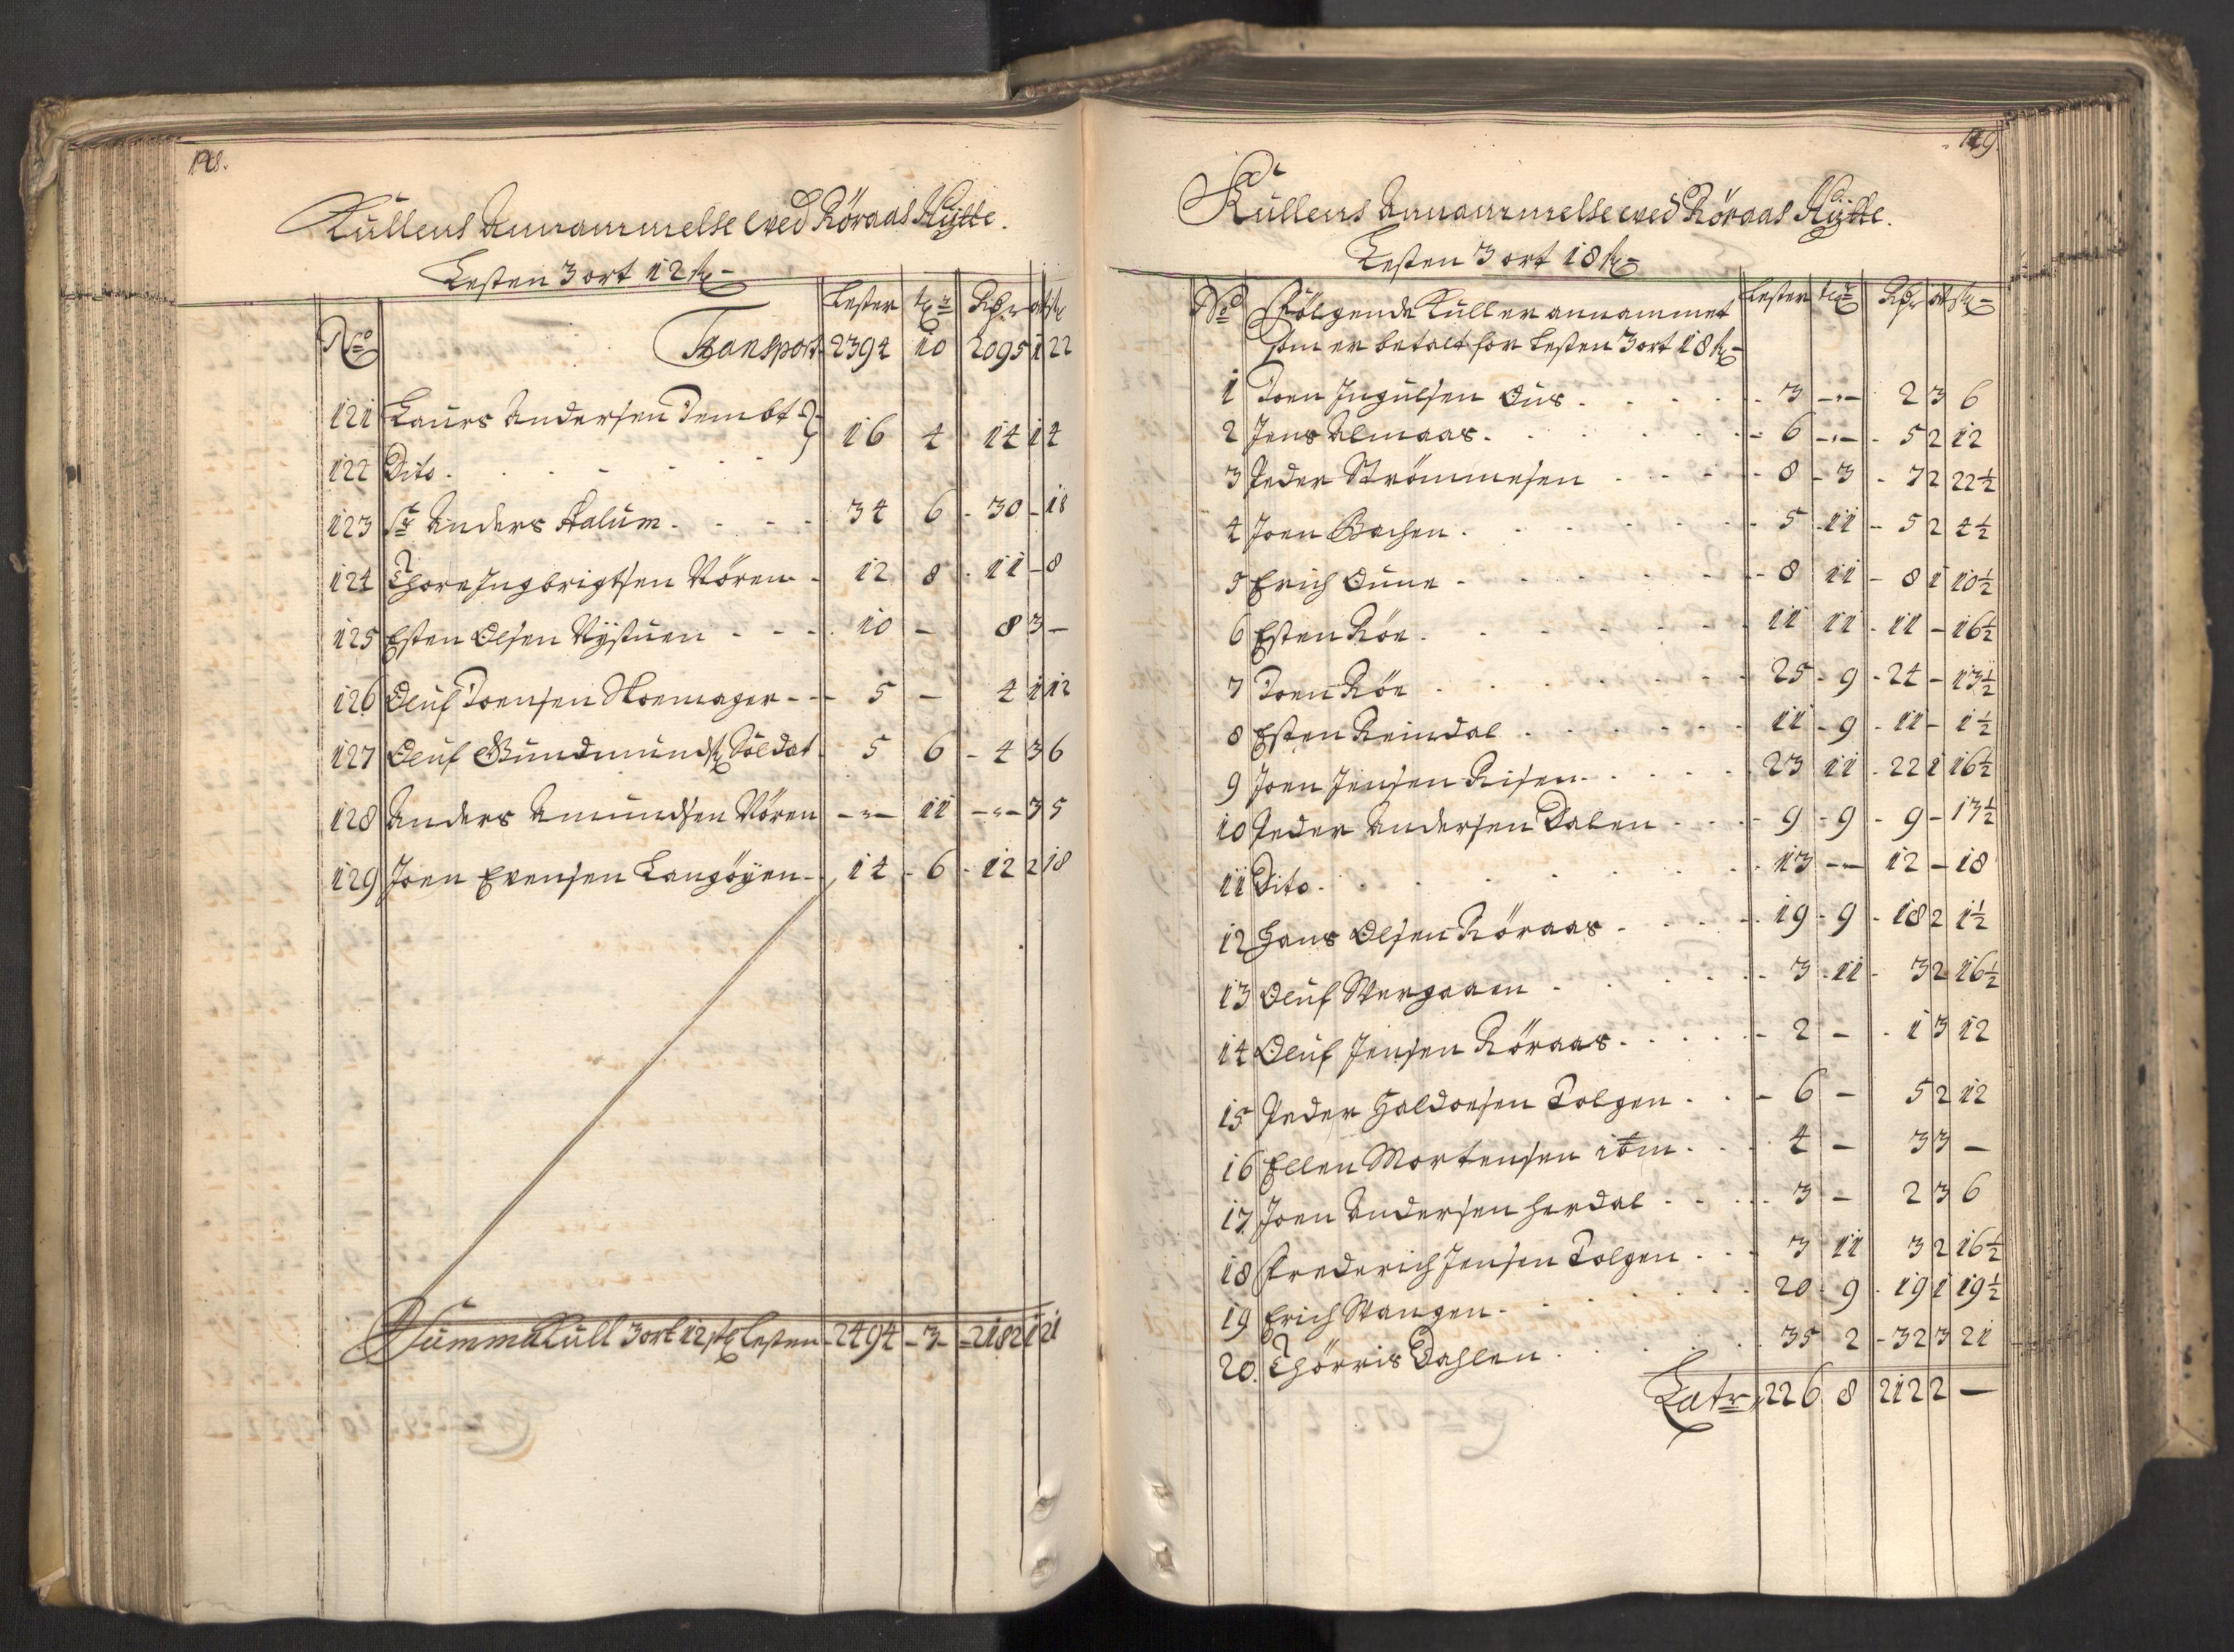 128.
Kullens Annammelse wed Röraas Hÿtte.
Lesten 3 ort 12 sk
Lester tr Rdr ort sk
No Transport 2394 10 2095 1 22
121 Laurs Andersen Tembt
16 4 14 1 4
122 Dito
123 Sr Anders Aalum 34 6 30 - 18
124 Thore Ingbrigtsen Nören 12 8 11 - 8
125 Esten Olsen Nÿstuen 10 - 8 3 -
126 Oluf Joensen 5 - 4 1 12
127 Oluf Gundmunds Soldat 5 6 4 3 6
128 Anders Amundsen Nören - 11 - 3 5
129 Joen Evensen Langöÿen 14 6 12 2 18
Summa Kull 3 ort 12 sk Lesten 2494 - 3 - 2182 1 21
129
Kullens Annammelse wed Röraas Hÿtte.
Lesten 3 ort 18 sk
No Fölgende Kull er annammet Lester tr Rdr ort sk
som er betalt for Lesten 3 ort 18 sk
1 Joen Ingulsen Ous 3 - 2 3 6
2 Jens Almaas 6 - 5 2 12
3 Peder Strömmesen 8 3 7 2 22½
4 Joen Bachen 5 11 5 2 4½
5 Erich Oune 8 11 8 1 10½
6 Esten Röe 11 11 11 - 16½
7 Joen Röe 25 9 24 - 13½
8 Esten Reindal 11 9 11 - 1½
9 Joen Jensen Risen 23 11 22 1 16½
10 Peder Andersen Dalen 9 9 9 - 13½
11 Dito 13 - 12 - 18
12 Hans Olsen Röraas 19 9 18 2 1½
13 Oluf Wergaaen 3 11 3 2 16½
14 Oluf Jensen Röraas 2 - 1 3 12
15 Peder Haldorsen Tolgen 6 - 5 2 12
16 Ellen Mortensen itm 4 - 3 3 -
17 Joen Andersen Herdal 3 - 2 3 6
18 Frederich Jensen Tolgen 3 11 3 2 16½
19 Erich Wangen 20 9 19 1 19½
20. Thörris Dahlen 35 2 32 3 21
Latr 226 8 212 2 -